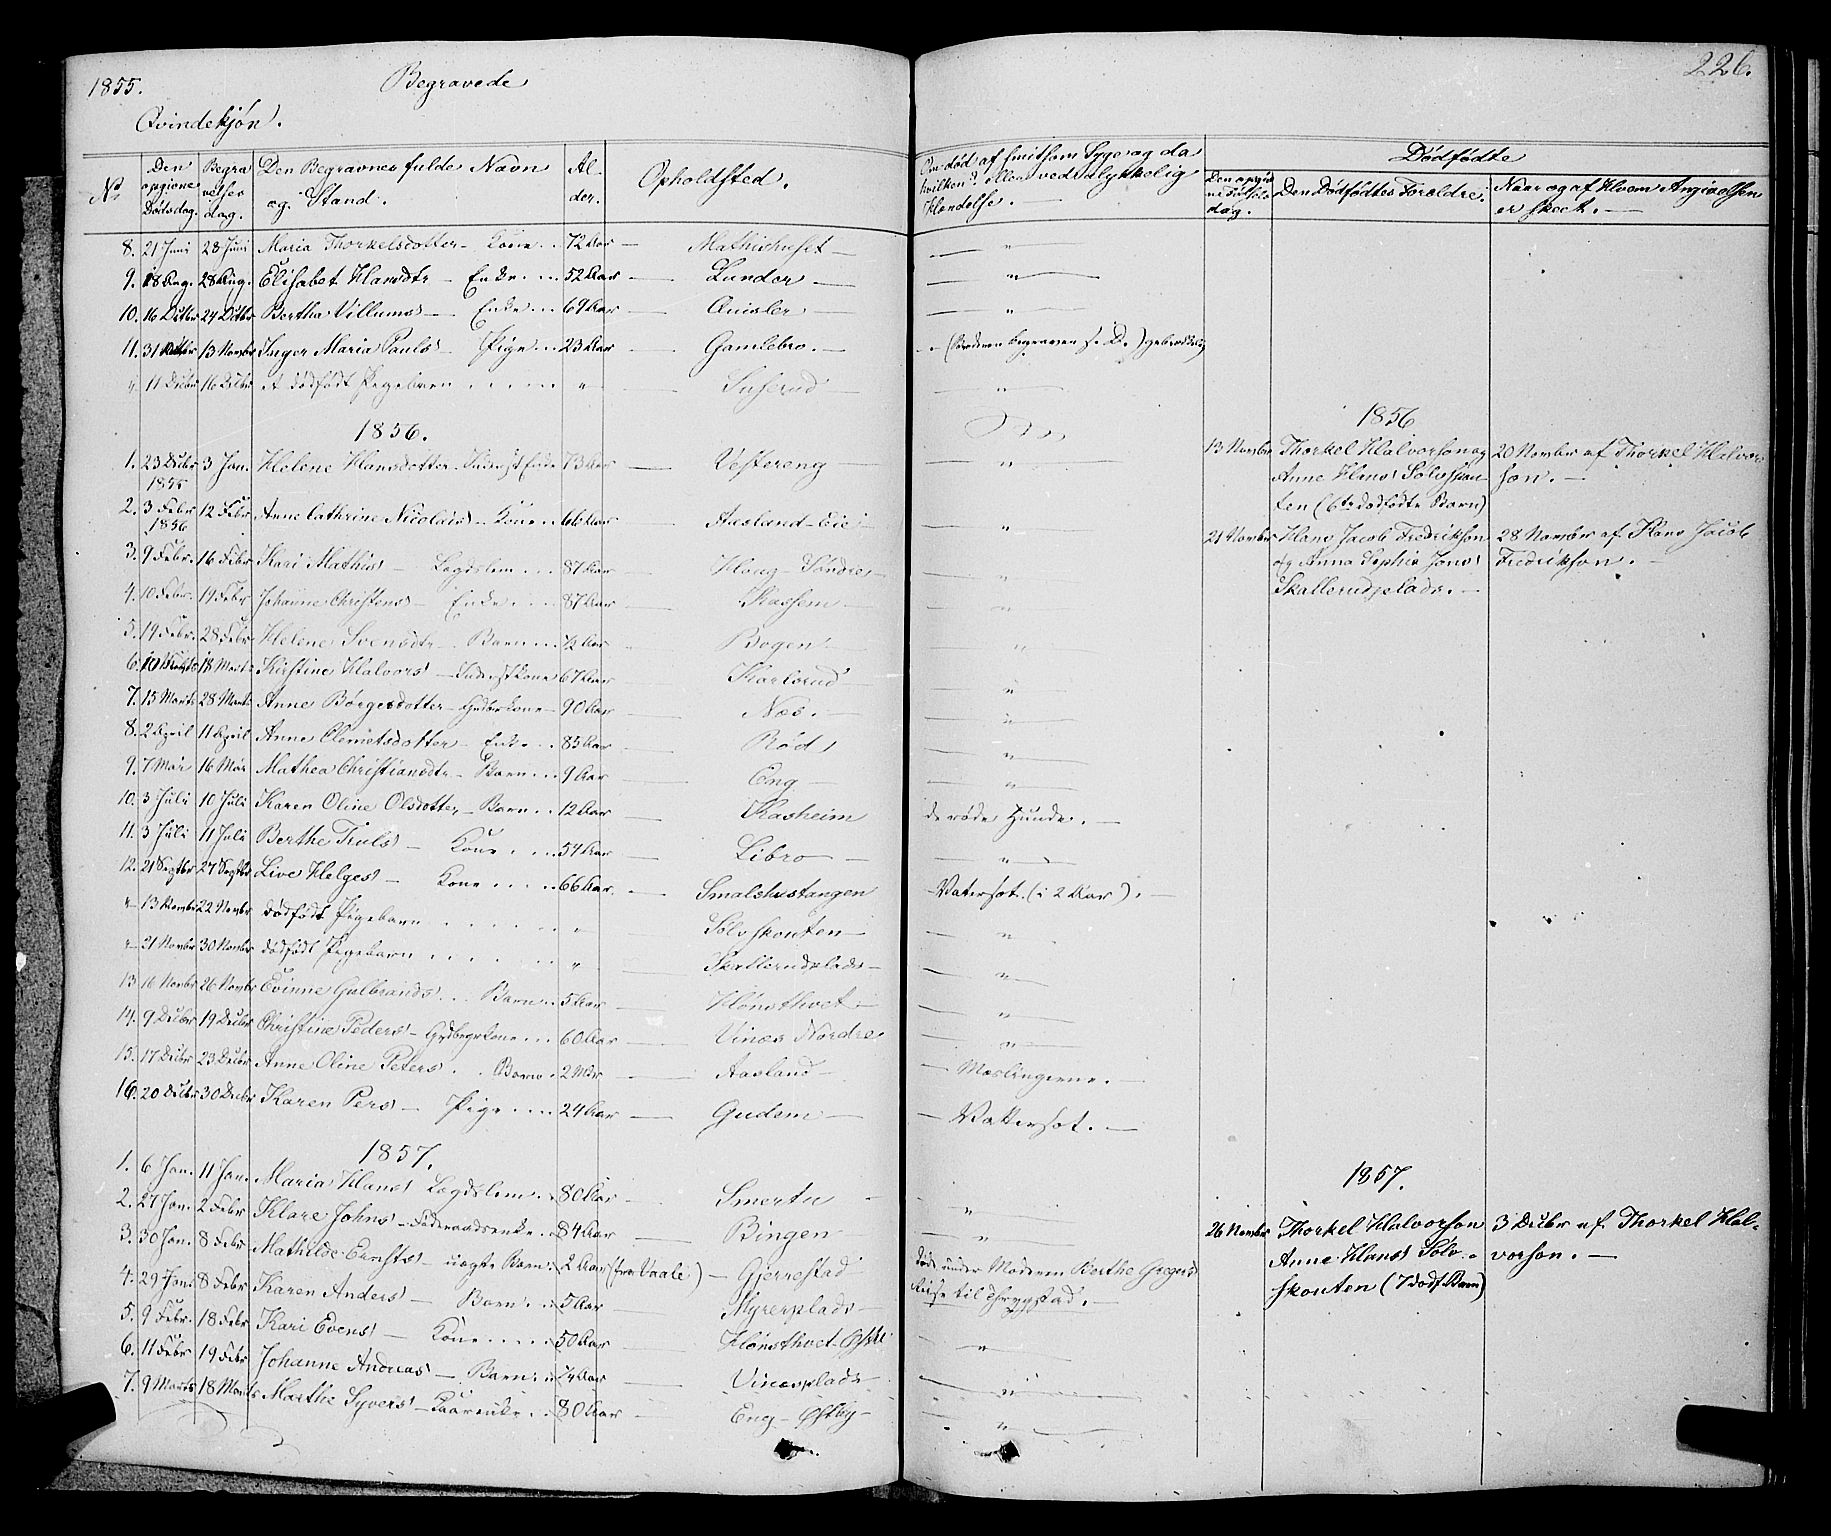 1855. Begravede 226.
Qvindekjøn.
No Den opgivne Dødsdag. Begravelsesdag. Den Begravnes fulde Navn og Stand. Alder. Opholdsted. Om død af smitsom Syge og da hvilken? Eller ved ulykkelig Hændelse. Dødfødte
Den opgivne Fødselsdag. Den Dødfødtes Forældre. Naar og af Hvem Angivelsen er skeet.
8. 21 Juni 28 Juni Maria Thorkelsdotter - Kone 72 Aar - Mathishuset - "
9. 18 Aug. 28 Aug. Elisabet Hansdtr - Enke 52 Aar - Lunder - "
10. 16 Octbr 24 Octbr Bertha Villums - Enke 69 Aar - Quisler - "
11. 31 Octbr 13 Novmbr Inger Maria Pauls - Pige 23 Aar - Gamlebro. -
" 11 Decbr 16 Decbr et dødfødt Pigebarn " - "
1856. 1856
1. 23 Decbr 1855 3 Jan. Helene Hansdotter - Enke 73 Aar - Vestereng - "
13 Novmbr Thorkel Halvorson og 20 Novmbr af Thorkel Halvor-
Anne Hans' Sølvskou- son. -
ten (6te dødfødte Barn)
2. 3 Febr 1856 12 Febr Anne Cathrine Nicolais - Kone 66 Aar - Aasland-Eie - "
21 Novmbr Hans Jacob Fredrikson 28 Novmbr af Hans Jacob
og Anna Sophie Jons' Fredrikson. -
Skallerudplads. -
3. 9 Febr. 16 Febr Kari Mathis - Lægdslem 87 Aar - Houg - Søndre - "
4. 10 Febr. 19 Febr Johanne Christens - Enke 87 Aar - "
5. 19 Febr. 28 Febr Helene Svensdtr - Barn ½ Aar - Bogen - "
6. 10 Marts 18 Marts Kirstine Halvors - 67 Aar - Karlsrud - "
7. 15 Marts 28 Marts Anne Børgesdotter - 90 Aar - Næs. - "
8. 2 April 11 April Anne Clemetsdotter - Enke 85 Aar - Rød - "
9. 7 Mai 16 Mai Mathea Christiansdtr - Barn 9 Aar - Eng - "
10. 3 Juli 10 Juli Karen Oline Olsdotter - Barn 12 Aar - Kasheim de røde Hunde. -
11. 3 Juli 11 Juli Berthe Truls - Kone 54 Aar - Libro - "
12. 21 Septbr 27 Septbr Live Helges - Kone 66 Aar - Smalshustangen - Vatersot (i 2 Aar). -
" 13 Novmbr 22 Novmbr dødfødt Pigebarn " Sølvskouten - "
" 21 Novmbr 30 Novmbr dødfødt Pigebarn " Skallerudplads - "
13 16 Novmbr 26 Novmbr Evinne Gulbrands Barn 5 Aar - Hønsthvet - "
14. 9 Decbr 19 Decbr Christine Peders - 60 Aar - Vinæs Nordre - "
15. 17 Decbr 23 Decbr Anne Oline Peters Barn 2 Mdr - Aasland - Mæslingerne. -
16. 20 Decbr 30 Decbr Karen Pers - Pige 24 Aar - Gudem - Vattersot. -
1857. 1857.
1. 6 Jan. 11 Jan. Maria Hans' Lægdslem 80 Aar - Smertu - "
2. 27 Jan. 2 Febr Klare Johns - Føderaadsenke 84 Aar - Bingen - "
26 Novmbr Thorkel Halvorson 3 Decbr af Thorkel Hal-
Anne Hans' Sølv- vorson. -
skouten (7 dødf. Barn)
3. 30 Jan. 8 Febr Mathilde Ernsts - uægte Barn 2 Aar (fra Vaale) - Gjerrestad døde under Moderen Berthe Gregers'
Reise til
4. 29 Jan. 8 Febr Karen Anders - Barn 5 Aar - Myrerplads -
5. 9 Febr. 18 Febr Kari Evens - Kone 50 Aar - Hønsthvet - "
6. 11 Febr 19 Febr Johanne Andreas - Barn Aar - Vinæsplads - "
7. 9 Marts 18 Marts Marthe Syvers - 80 Aar - Eng - Østby - "